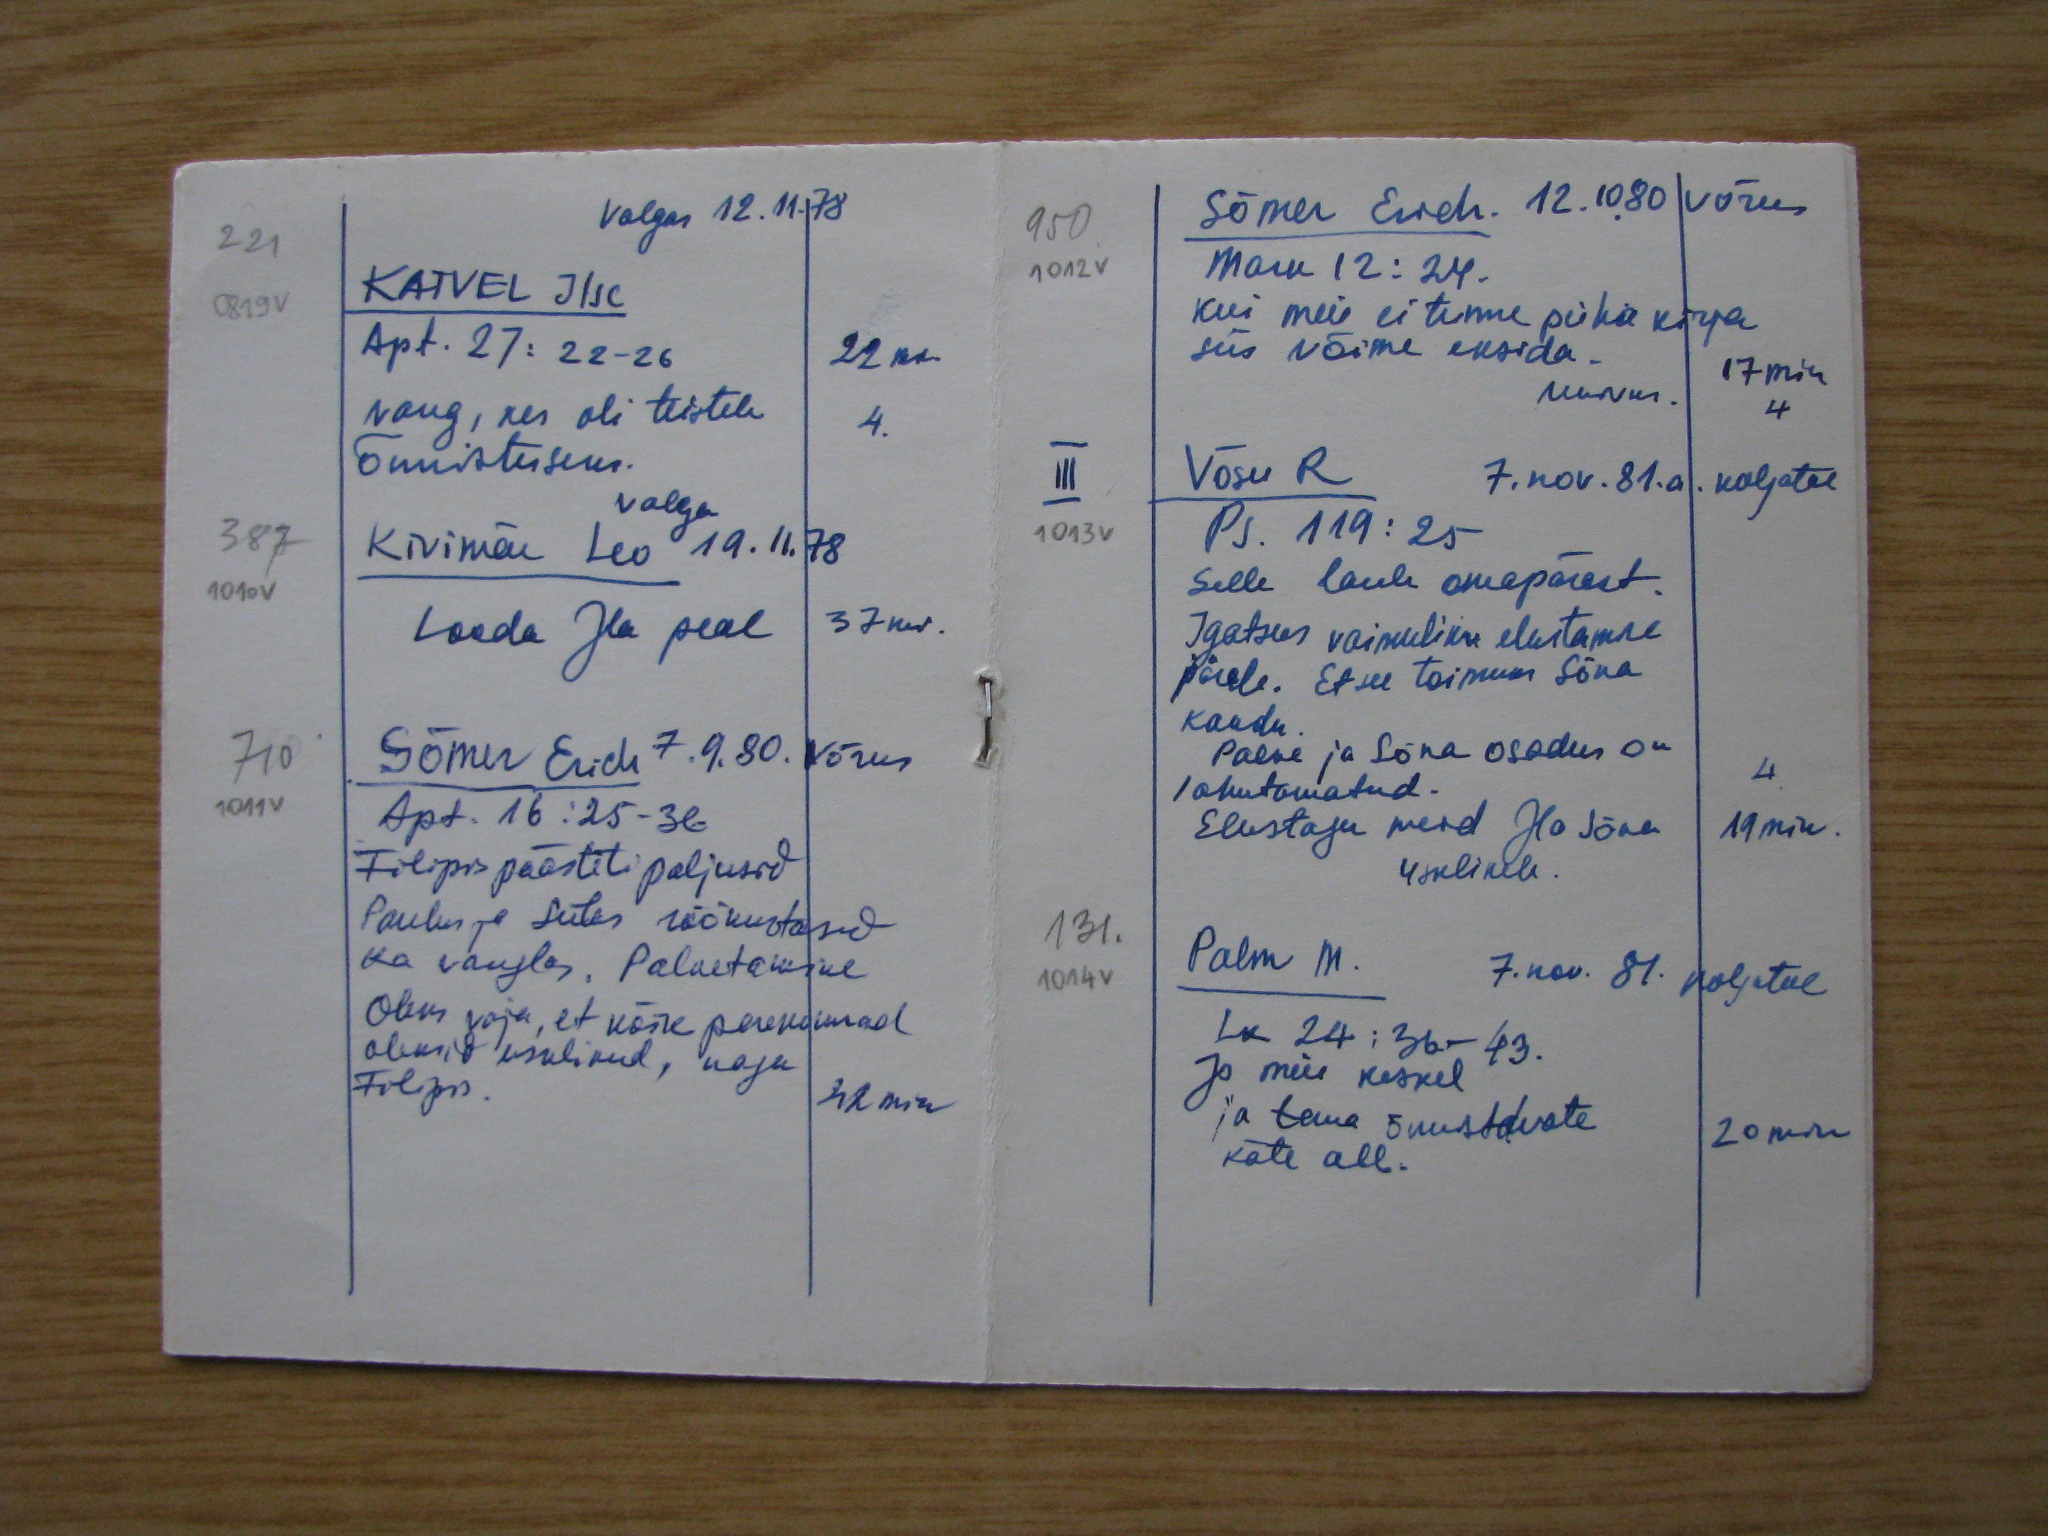 Valgas 12.11.78
221
0819V
KATVEL Ilse
Apt. 27: 22-26
22 min.
vang, kes oli teistele
4.
Õnnistuseks.
Valga
387
Kivimäe Leo 19.11.78
1010V
Looda Jla peal
37 min.
710
Sõmer Erich 7.9.80. Võrus
1011V
Apt. 16:25-36
Filipis päästeti paljusid
Paulus ja Siilas rõõmustasid
ka vanglas. Palvetamine
Oleks vaja, et kõik perekonnad
oleksid usklikud, nagu
Filipis.
42 min
950
Sõmer Erich. 12.10.80 Võrus
1012V
Mark 12: 24.
kui meie ei tunne püha kirja
siis võime eksida.
17 min
4
III
Võsu R 7. nov. 81. a. Koljatal
1013V
Ps. 119: 25
Selle laulu omapärast.
Igatsus vaimuliku elustamise
järele. Et see toimuks Sõna
kaudu.
Palve ja Sõna osadus on
4
lahutamatud.
Elustagu meid Jla Sõna
19 min.
Usklikele.
131.
Palm M. 7. nov. 81. Koljatal
1014V
Lk 24: 36-43.
Js meie keskel
ja tema õnnistavate
20 min
käte all.